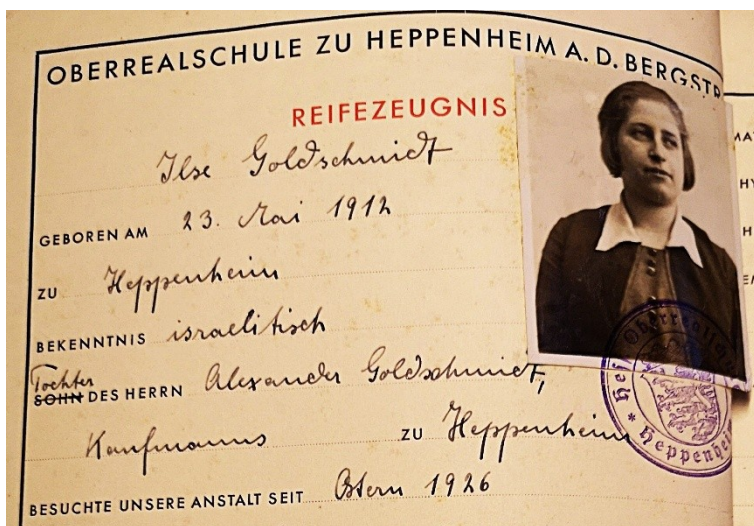 OBERREALSCHULE ZU HEPPENHEIM A. D. BERGSTR
REIFEZEUGNIS
Ilse Goldschmidt
GEBOREN AM 23. Mai 1912
ZU Heppenheim
BEKENNTNIS israelitisch
Tochter
SOHN DES HERRN Alexander Goldschmidt,
Kaufmanns ZU Heppenheim
BESUCHTE UNSERE ANSTALT SEIT Ostern 1926